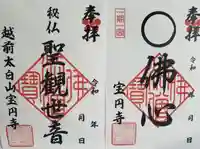 奉拝
秘仏
聖観世音
令和 年 月 日
越前太白山宝円寺
奉拝
一期一会
佛心
令和 年 月 日
宝円寺